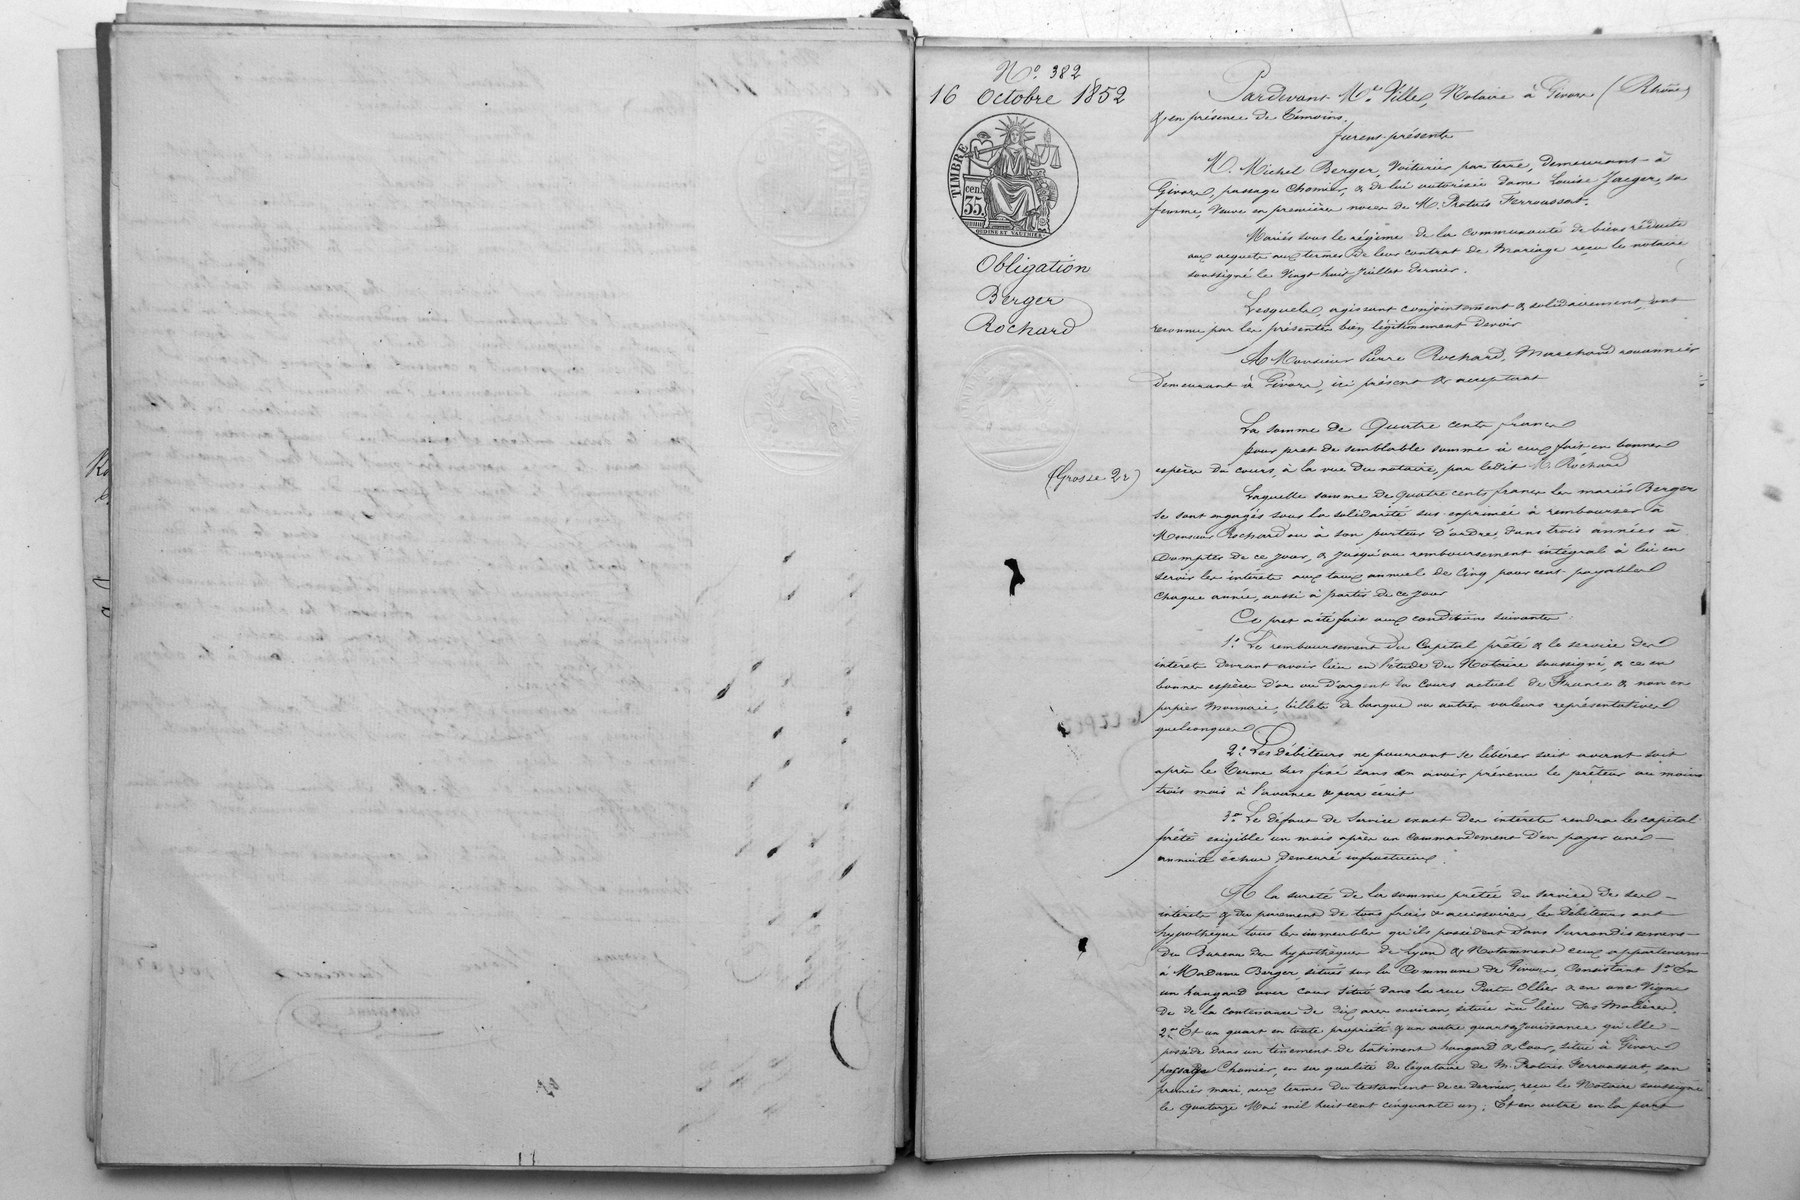 No. 382
16 Octobre 1852
TIMBRE
cen.
35.
Obligation
Berger
Rochard
(Grosse 2 r)
Pardevant Me. Ville, Notaire à Givors (Rhône)
& en présence de témoins.
furent présents
M. Michel Berger, Voiturier par terre, demeurant à
Givors, passage Chomier, & de lui autorisée dame Louise Jaeger, sa
femme, Veuve en premières noces de M. Protais Ferroussat.
Mariés sous le régime de la communauté de biens réduite
aux acquets aux termes de leur contrat de Mariage reçu le notaire
soussigné le Vingt huit Juillet dernier.
Lesquels, agissant conjointement & solidairement, ont
reconnu par les présentes bien légitimement devoir
A Monsieur Pierre Rochard, Marchand rouannier
demeurant à Givors, ici présent & acceptant
La somme de Quatre cents francs
pour pret de semblable somme à eux fait en bonnes
espèces du cours, à la vue du notaire, par ledit M. Rochard
Laquelle somme de quatre cents francs les mariés Berger
se sont engagés sous la solidarité sus exprimée à rembourser à
Monsieur Rochard ou à son porteur d'ordre, dans trois années à
Compter de ce jour, & jusqu'au remboursement intégral à lui en
servir les intérêts aux taux annuel de Cinq pour cent payables
chaque année, aussi à partir de ce jour
Ce pret a été fait aux conditions suivantes:
1.° Le remboursement du Capital prêté & le service des
intérêts devront avoir lieu en l'étude du Notaire soussigné, & ce en
bonnes espèces d'or ou d'argent du cours actuel de France & non en
papier Monnaie, billets de banque ou autres valeurs représentatives
quelconques
2.° Les débiteurs ne pourront se libérer soit avant soit
après le terme sus fixé sans en avoir prévenu le prêteur au moins
trois mois à l'avance & par écrit
3.° Le défaut de service exact des intérêts rendra le capital
prêté exigible un mois après un commandement d'en payer une
annuité échue, demeuré infructueux.
A la sureté de la somme prêtée du service de ses
intérêts & du paiement de tous frais & accessoires, les débiteurs ont
hypothéqué tous les immeubles qu'ils possèdent dans l'arrondissement
du Bureau des hypothèques de Lyon & Notamment ceux appartenans
à Madame Berger, situés sur la Commune de Givors, Consistant 1.° En
un hangard avec cour situé dans la rue Puits Ollier & en une Vigne
de de la contenance de dix ares environ, située au lieu des Molières,
2.° Et un quart en toute propriété & un autre quart jouissance qu'elle
possède dans un tènement de bâtiment hangard & Cour, situé à Givors
passage Chomier, en sa qualité de légataire de M. Protais Ferroussat, son
premier mari, aux termes du testament de ce dernier, reçu le Notaire soussigné
le Quatorze Mai mil huit cent cinquante un. Et en outre en la part